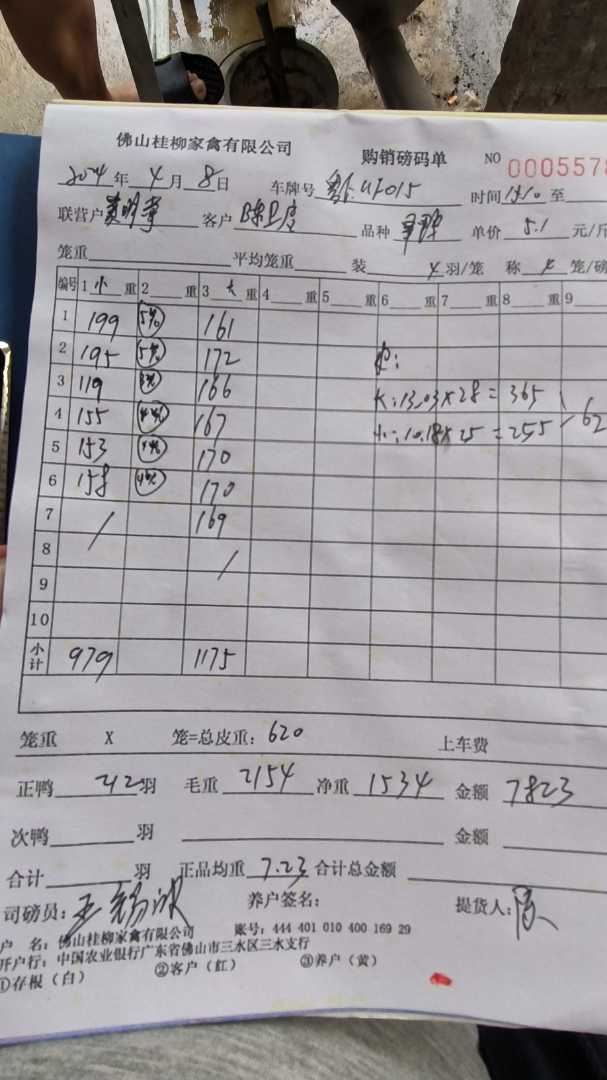 佛山桂柳家禽有限公司 购销磅码单 NO 0005578
年 4 月 8 日 车牌号 U1015 时间 至
联营户 客户 品种 单价 5.1 元/斤
笼重 平均笼重 装 4 羽/笼 称 笼/磅
编号 1 小 重 2 重 3 大 重 4 重 5 重 6 重 7 重 8 重 9
1 199 161
2 195 172
3 119 166
大:13.03×28=365
4 155 167 62
小:10.18×25=255
5 153 170
6 158 170
7 / 169
8 /
9
10
小计 979 1175
笼重 X 笼=总皮重: 620 上车费
正鸭 212 羽 毛重 2154 净重 1534 金额 7823
次鸭 羽 金额
合计 羽 正品均重 7.23 合计总金额
司磅员: 养户签名: 提货人: 陈
户 名: 佛山桂柳家禽有限公司 账号: 444 401 010 400 169 29
开户行: 中国农业银行广东省佛山市三水区三水支行
①存根(白) ②客户(红) ③养户(黄)